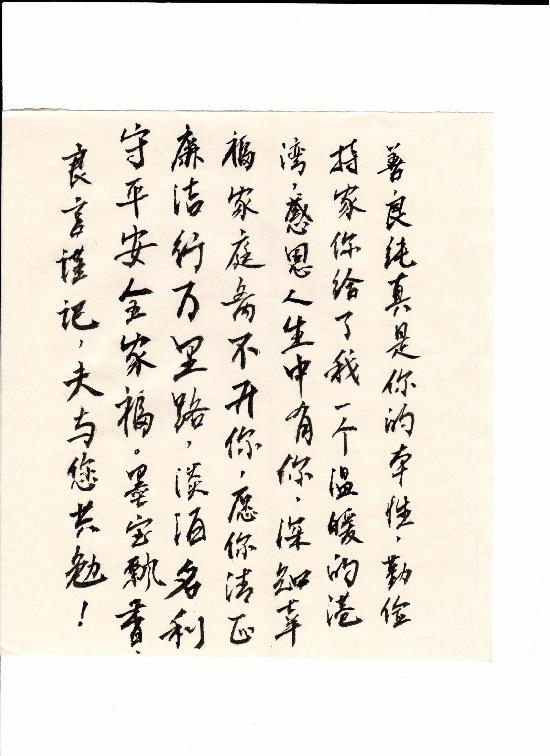 善良纯真是你的本性，勤俭
持家你给了我一个温暖的港
湾，感恩人生中有你，深知幸
福家庭离不开你，愿你清正
廉洁行万里路，淡泊名利
守平安全家福。墨宝飘香，
良言谨记，夫与您共勉！